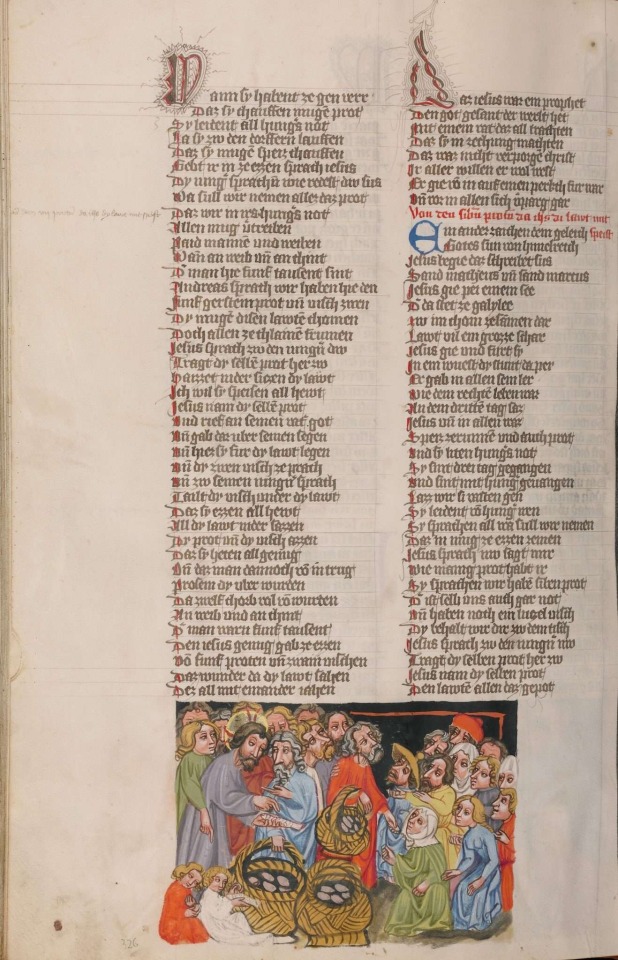 Wann sy habent ze gen verr
Daz sy chauffen mugē prot
Sy leident all hungs not
Ja sy zw den dorffern lauffen
Daz sy mugē speiz chauffen
Gebt ir in ze ezzen sprach iesus
Dy iungˢ sprachn̄ wie redest dw sus
Wa sull wir nemen aller daz prot
Daz wir in
Allen mug vˢtreiben
Paid mannē und weiben
Wan̄ an weib vn̄ an chint
Dˢ man hie funf tausent sint
Andreas sprach wir haben hie den
Funf gerstein prot vn̄ visch zwen
Dy mugē disen lawtē chomen
Doch allen ze chlainē frumen
Jesus sprach zw den iungn̄ dw
Tragt dy selbē prot her zw
Haizzet nider siczen dy lawt
Ich wil sy speisen all hewt
Jesus nam dy selbē prot
Und rief an seinen vatˢ got
Vn̄ gab dar uber seinen segen
Vn̄ hiez sy fur dy lawt legen
Vn̄ dy zwen visch ze prach
Vn̄ zw seinen iungn̄ sprach
Tailt dy visch under dy lawt
Daz sy ezzen all hewt
All dy lawt nider sazzen
Dy prot vn̄ dy visch azzen
Daz sy heten all genug
Vn̄ daz man dannoch vō in trug
Prosem dy uber wurden
Da zwelf chorb vol vō wurden
An weib und an chint
Dˢ man warn funf tausent
Den iesus genug gab ze ezzen
Vō funf proten vn̄ zwain vischen
Daz wunder da dy lawt sahen
Dez all mit einander iahen
Daz iesus wær ein prophet
Den got gesant der werlt het
Mit einem rat daz all trachten
Daz sy in ze chunig machten
Daz waz nicht verporgē christ
Ir aller willen er wol west
Er gie vō in auf einen perkch fur war
Vn̄ vor in allen sich vˢparg gar
Von den sibn̄ protn̄ da ihs di lawt mit speist
Ein ander zaichen dem geleich
Gotes sun von himelreich
Jesus begie daz schreibet sus
Sand matheus vn̄ sand marcus
Jesus gie pei einem see
Dˢ da stet ze galylee
Zw im chom zesamen dar
Lawt vil ein grozze schar
Jesus gie und furt sy
In ein wuest dy stunt da pey
Er gab in allen sein ler
Wie dem rechtē leben wær
An dem drittē tag saz
Jesus vn̄ in allen waz
Speiz zerunnē und auch prot
Und sy liten hungs not
Sy sint drei tag gegangen
Und sint mit hungˢ geuangen
Lazz wir si vasten gen
Sy leident vō hungˢ wen
Sy sprachen all wa sull wir nemen
Daz in mug ze ezzen zemen
Jesus sprach nw sagt mir
Wie manig prot habt ir
Sy sprachen wir habē siben prot
Dˢ ist selb uns auch gar not
Vn̄ haben noch ein luczel visch
Dy behalt wir dir zw dem tisch
Jesus sprach zw den iungn̄ nw
Tragt dy selben prot her zw
Jesus nam dy selben prot
Den lawtē allen daz gepot
226